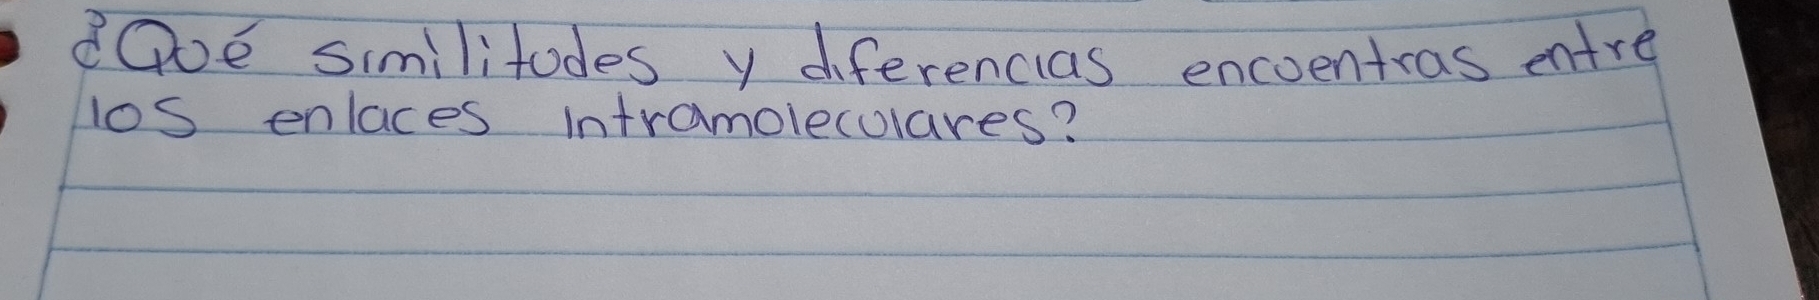 ¿Qué similitudes y diferencias encuentras entre
los enlaces intramoleculares?